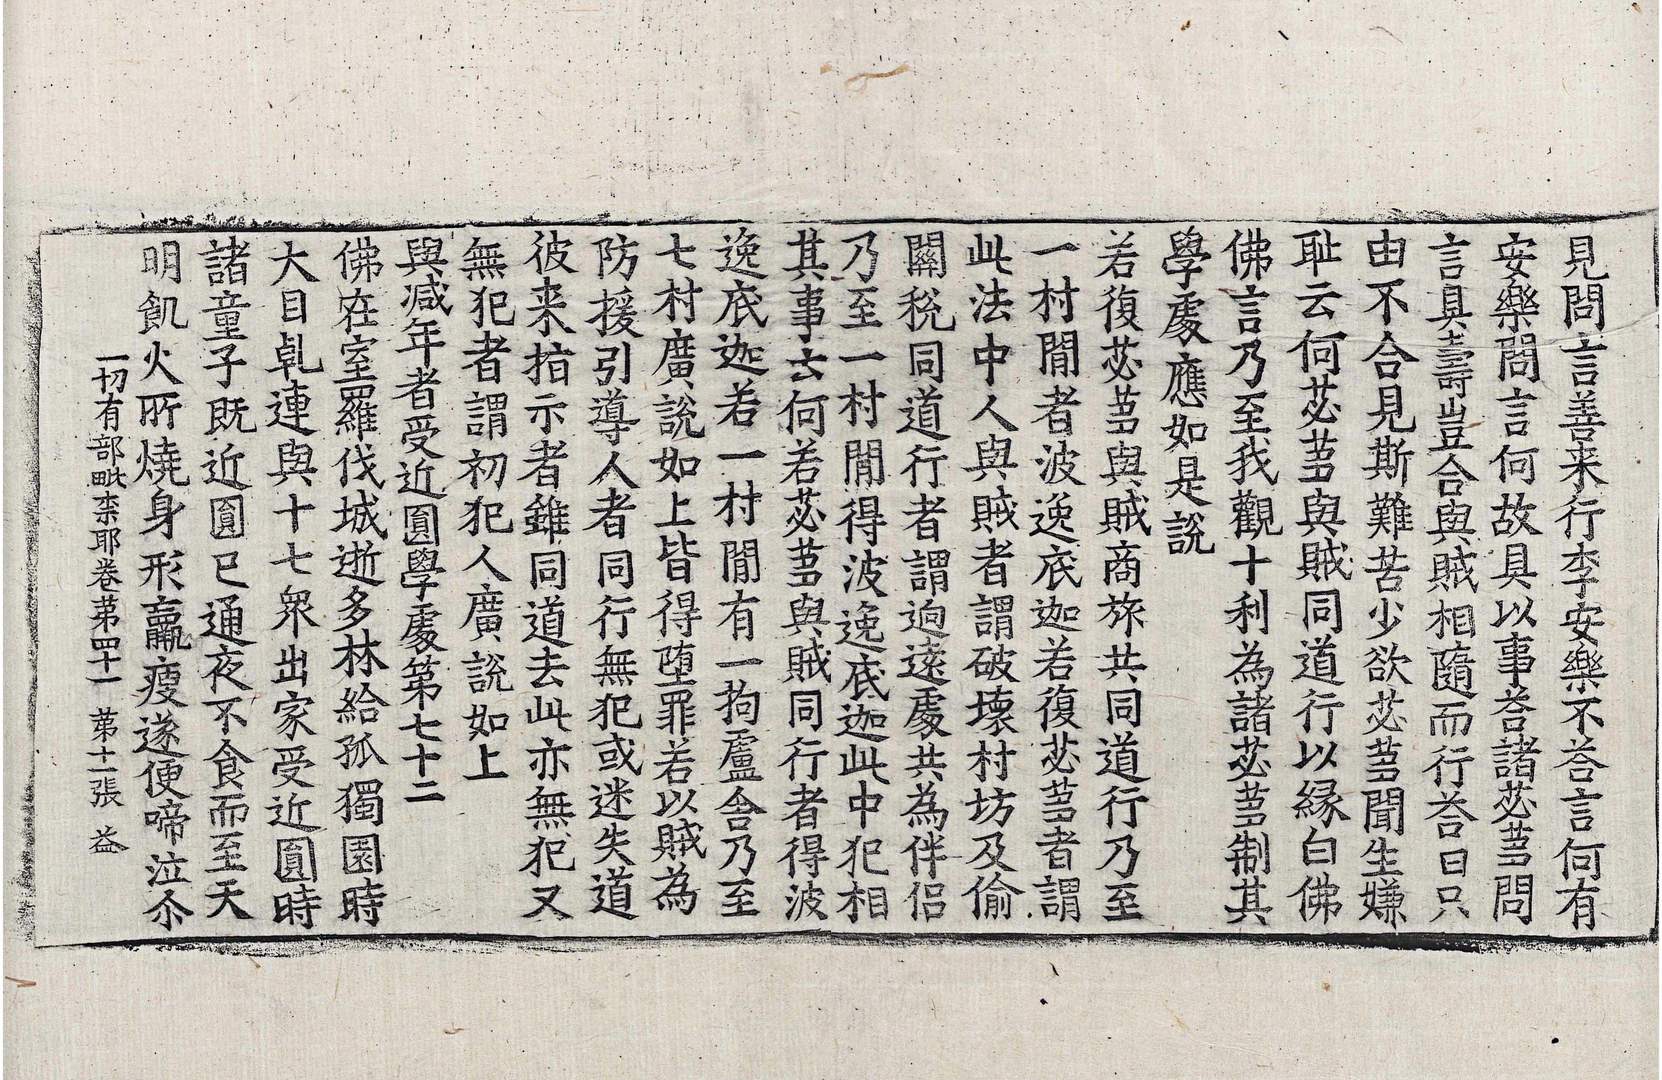 見問言善来行李安樂不荅言何有
安樂問言何故具以事荅諸苾芻問
言具壽豈合與賊相隨而行荅曰只
由不合見斯難苦少欲苾芻聞生嫌
耻云何苾芻與賊同道行以縁白佛
佛言乃至我觀十利為諸苾芻制其
學處應如是説
若復苾芻與賊商旅共同道行乃至
一村閒者波逸底迦若復苾芻者謂
此法中人與賊者謂破壞村坊及偷
關税同道行者謂逈遠處共為伴侣
乃至一村閒得波逸底迦此中犯相
其事云何若苾芻與賊同行者得波
逸底迦若一村閒有一拘盧舍乃至
七村廣説如上皆得墮罪若以賊為
防援引導人者同行無犯或迷失道
彼来指示者雖同道去此亦無犯又
無犯者謂初犯人廣説如上
與减年者受近圓學處第七十二
佛在室羅伐城逝多林給孤獨園時
大目乹連與十七衆出家受近圓時
諸童子既近圓已通夜不食而至天
明飢火所燒身形羸瘦遂便啼泣尒
一切有部毗柰耶卷第四十一 第十二張 益